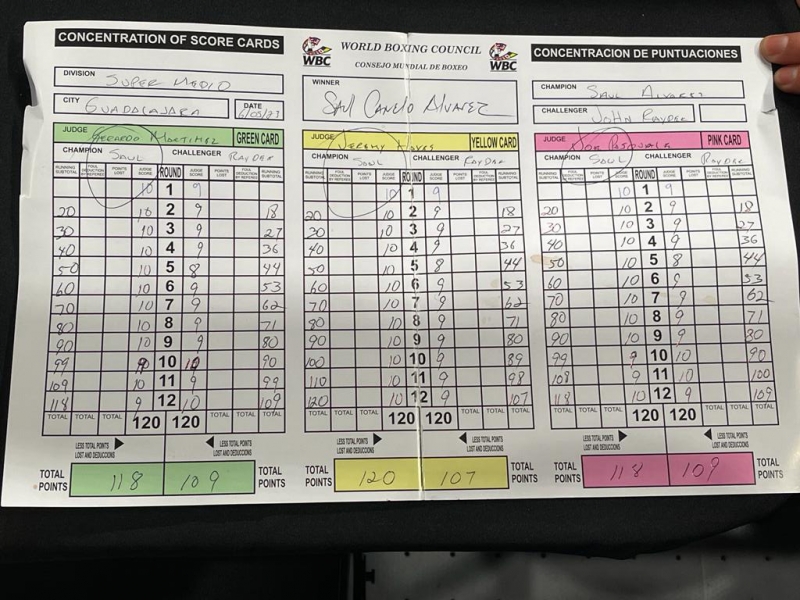 CONCENTRATION OF SCORE CARDS
DIVISION SUPER MEDIO
CITY GUADALAJARA DATE 6/05/23
WBC WORLD BOXING COUNCIL WBC
CONSEJO MUNDIAL DE BOXEO
WINNER
SAUL CANELO ALVAREZ
CONCENTRACION DE PUNTUACIONES
CHAMPION SAUL ALVAREZ
CHALLENGER JOHN RAYDER
JUDGE GERARDO MARTINEZ GREEN CARD
CHAMPION SAUL CHALLENGER RAYDER
RUNNING SUBTOTAL FOUL DEDUCTION BY REFEREE POINTS LOST JUDGE SCORE ROUND JUDGE SCORE POINTS LOST FOUL DEDUCTION BY REFEREE RUNNING SUBTOTAL
10 1 9
20 10 2 9 18
30 10 3 9 27
40 10 4 9 36
50 10 5 8 44
60 10 6 9 53
70 10 7 9 62
80 10 8 9 71
90 10 9 9 80
99 9 10 10 90
109 10 11 9 99
118 9 12 10 109
TOTAL TOTAL TOTAL TOTAL 120 120 TOTAL TOTAL TOTAL TOTAL
LESS TOTAL POINTS LOST AND DEDUCCIONS LESS TOTAL POINTS LOST AND DEDUCCIONS
TOTAL POINTS 118 109 TOTAL POINTS
JUDGE JEREMY HAYES YELLOW CARD
CHAMPION SAUL CHALLENGER RAYDER
RUNNING SUBTOTAL FOUL DEDUCTION BY REFEREE POINTS LOST JUDGE SCORE ROUND JUDGE SCORE POINTS LOST FOUL DEDUCTION BY REFEREE RUNNING SUBTOTAL
10 1 9
20 10 2 9 18
30 10 3 9 27
40 10 4 9 36
50 10 5 8 44
60 10 6 9 53
70 10 7 9 62
80 10 8 9 71
90 10 9 9 80
100 10 10 9 89
110 10 11 9 98
120 10 12 9 107
TOTAL TOTAL TOTAL TOTAL 120 120 TOTAL TOTAL TOTAL TOTAL
LESS TOTAL POINTS LOST AND DEDUCCIONS LESS TOTAL POINTS LOST AND DEDUCCIONS
TOTAL POINTS 120 107 TOTAL POINTS
JUDGE PASQUALE PINK CARD
CHAMPION SAUL CHALLENGER RAYDER
RUNNING SUBTOTAL FOUL DEDUCTION BY REFEREE POINTS LOST JUDGE SCORE ROUND JUDGE SCORE POINTS LOST FOUL DEDUCTION BY REFEREE RUNNING SUBTOTAL
10 1 9
20 10 2 9 18
30 10 3 9 27
40 10 4 9 36
50 10 5 8 44
60 10 6 9 53
70 10 7 9 62
80 10 8 9 71
90 10 9 9 80
99 9 10 10 90
108 9 11 10 100
118 10 12 9 109
TOTAL TOTAL TOTAL TOTAL 120 120 TOTAL TOTAL TOTAL TOTAL
LESS TOTAL POINTS LOST AND DEDUCCIONS LESS TOTAL POINTS LOST AND DEDUCCIONS
TOTAL POINTS 118 109 TOTAL POINTS